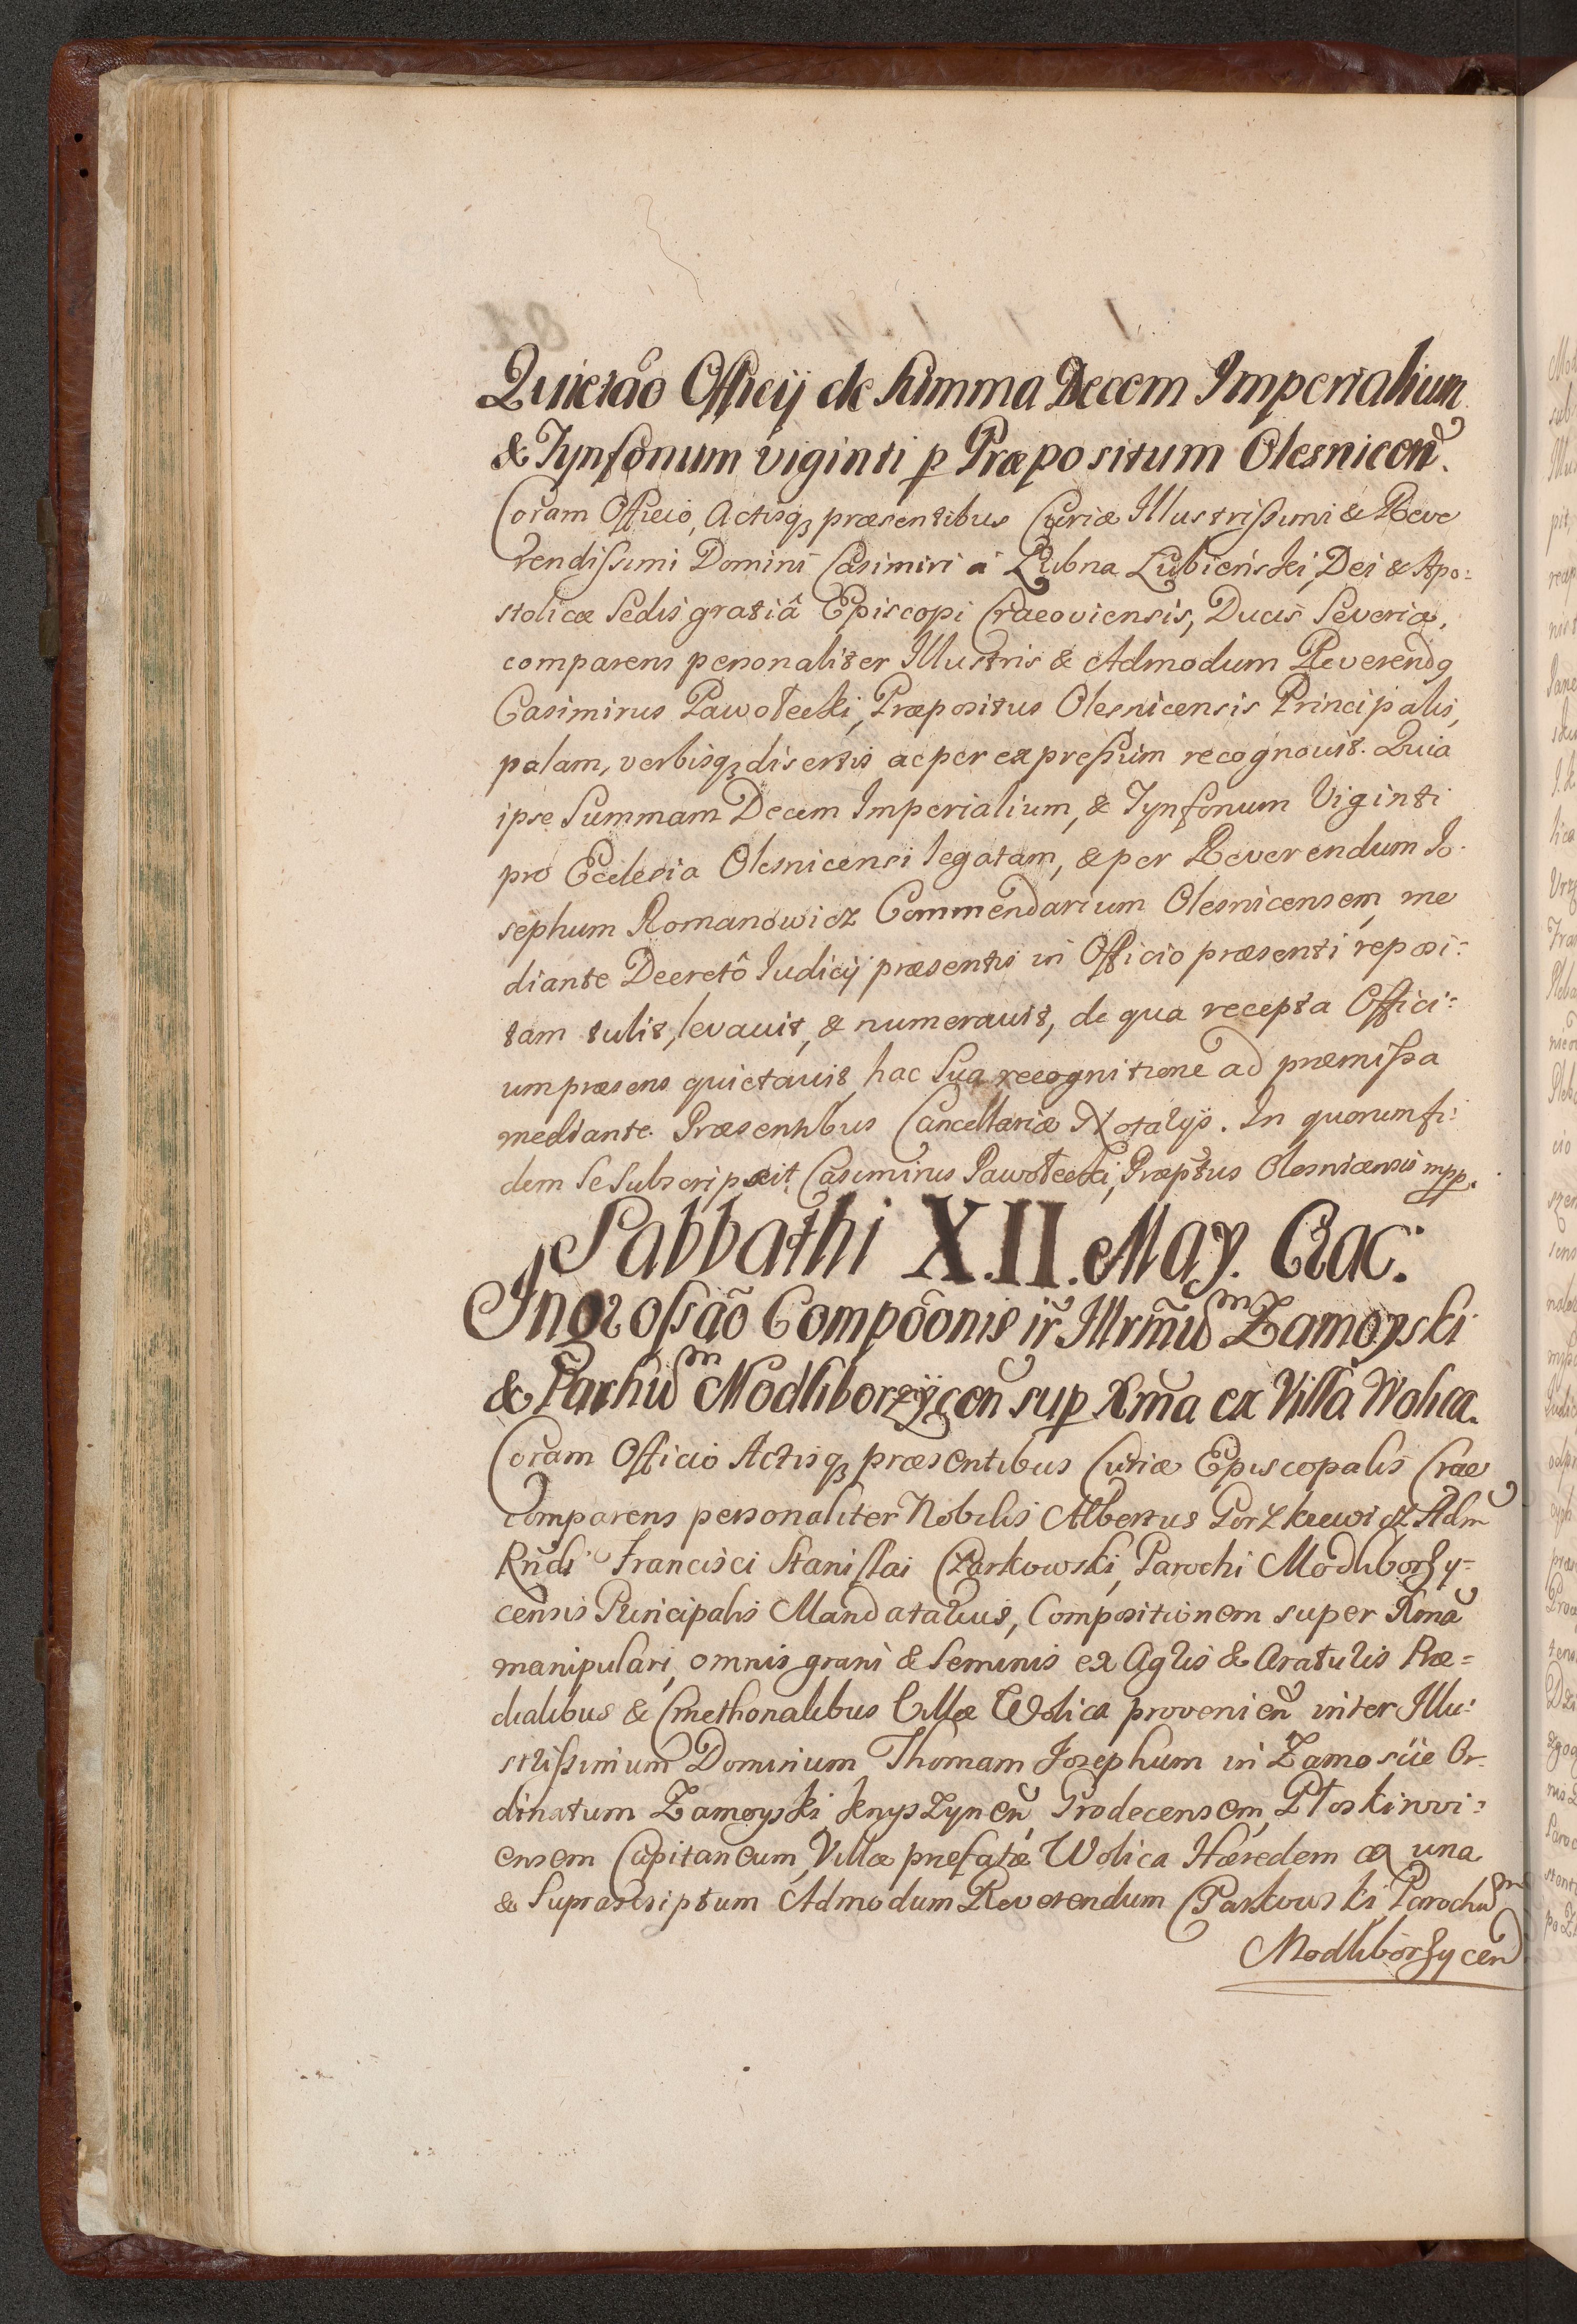 Quietaõ Officij de Summa Decem Imperialium
& Tynfonum viginti p Præpositum Olesnicen̄.
Coram Officio, Actisq3 præsentibus Curiæ Illustrißimi & Reve
rendißimi Domini Casimiri à Łubna Łubieński, Dei & Apo:
stolicæ Sedis gratiâ Episcopi Cracoviensis, Ducis Severiæ,
comparens personaliter Illustris & Admodum Reverend9
Casimirus Pawołecki, Præpositus Olesnicensis Principalis,
palam, verbisq3 disertis ac per expreßum recognouit. Quia
ipse Summam Decem Imperialium, & Tynfonum Viginti
pro Ecclesia Olesnicensi legatam, & per Reverendum Jo-
sephum Romanowicz Commendarium Olesnicensem, me
diante Decretô Iudicij præsentis in Officio præsenti reposi:
tam tulit, levauit, & numerauit, de qua recepta Offici:
um præsens quietauit, hac Sua recognitione ad præmißa
mediante. Præsentibus Cancellariæ Notarijs. In quorum fi:
dem Se Subscripsit, Casimirus Pawołecki, Præptus Olesnicensis mpp.
Sabbathi X.II. May. Crac:
Ingroßaõ Compoõnis ir̃ Illrm̃um Zamoyski
& Parhum Modliborzÿcen̄ sup Xma ex Villa Wolica.
Coram Officio Actisq3 præsentibus Curiæ Episcopalis Crac
Comparens personaliter Nobilis Albertus Gorzkiewicz Adm̄
Rndi Francisci Stanislai Czarkowski, Parochi Modliborzy=
censis Principalis Mandatarius, Compositionem super Xmã
manipulari, omnis grani & Seminis ex Agris & Araturis Præ=
dialibus & Cmethonalibus Villæ Wolica provenien̄ inter Illu:
strißimum Dominum Thomam Josephum in Zamoscie Or-
dinatum Zamoyski, Knyszynen̄, Grodecensem, Płoskirovi:
ensem Capitaneum, Villæ præfatæ Wolica Hæredem ex una
& Suprascriptum Admodum Reverendum Czarkowski Parochum
Modliborzycen̄